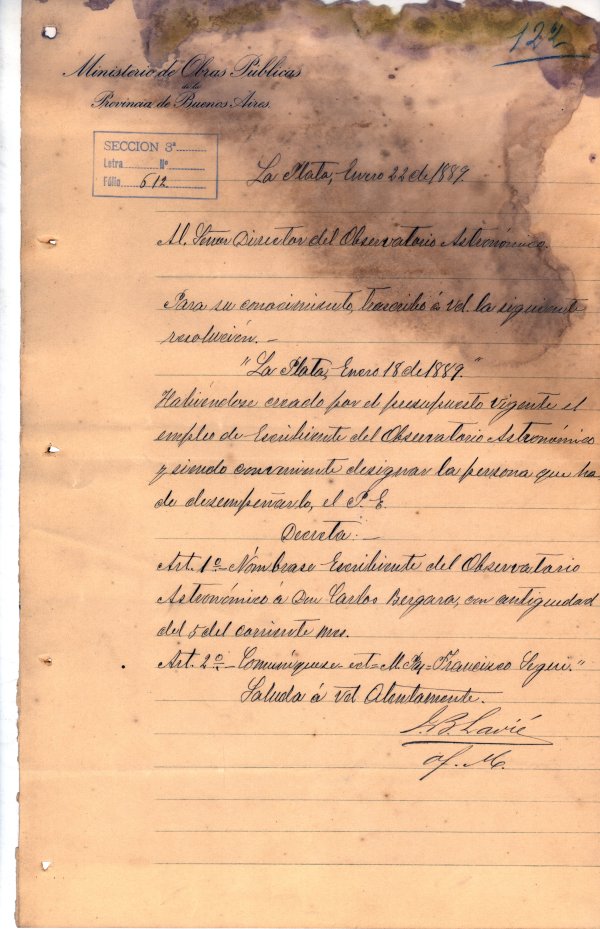 122
Ministerio de Obras Públicas
de la
Provincia de Buenos Aires.
SECCION 3ª
Letra Nº
Fólio 612
La Plata, Enero 22 de 1889.
Al Señor Director del Observatorio Astronómico.
Para su conocimiento, trascribo á Vd. la siguiente
resolución. -
"La Plata, Enero 18 de 1889."
Habiéndose creado por el presupuesto vigente el
empleo de Escribiente del Observatorio Astronómico
y siendo conveniente designar la persona que ha
de desempeñarlo, el P. E.
Decreta: -
Art. 1º Nómbrase Escribiente del Observatorio
Astronómico á Don Carlos Bergara, con antiguedad
del 5 del corriente mes.
Art. 2º - Comuníquese - ect = M. = Francisco Segui."
Saluda á Vd Atentamente.
J. B. Lavié
of. M.